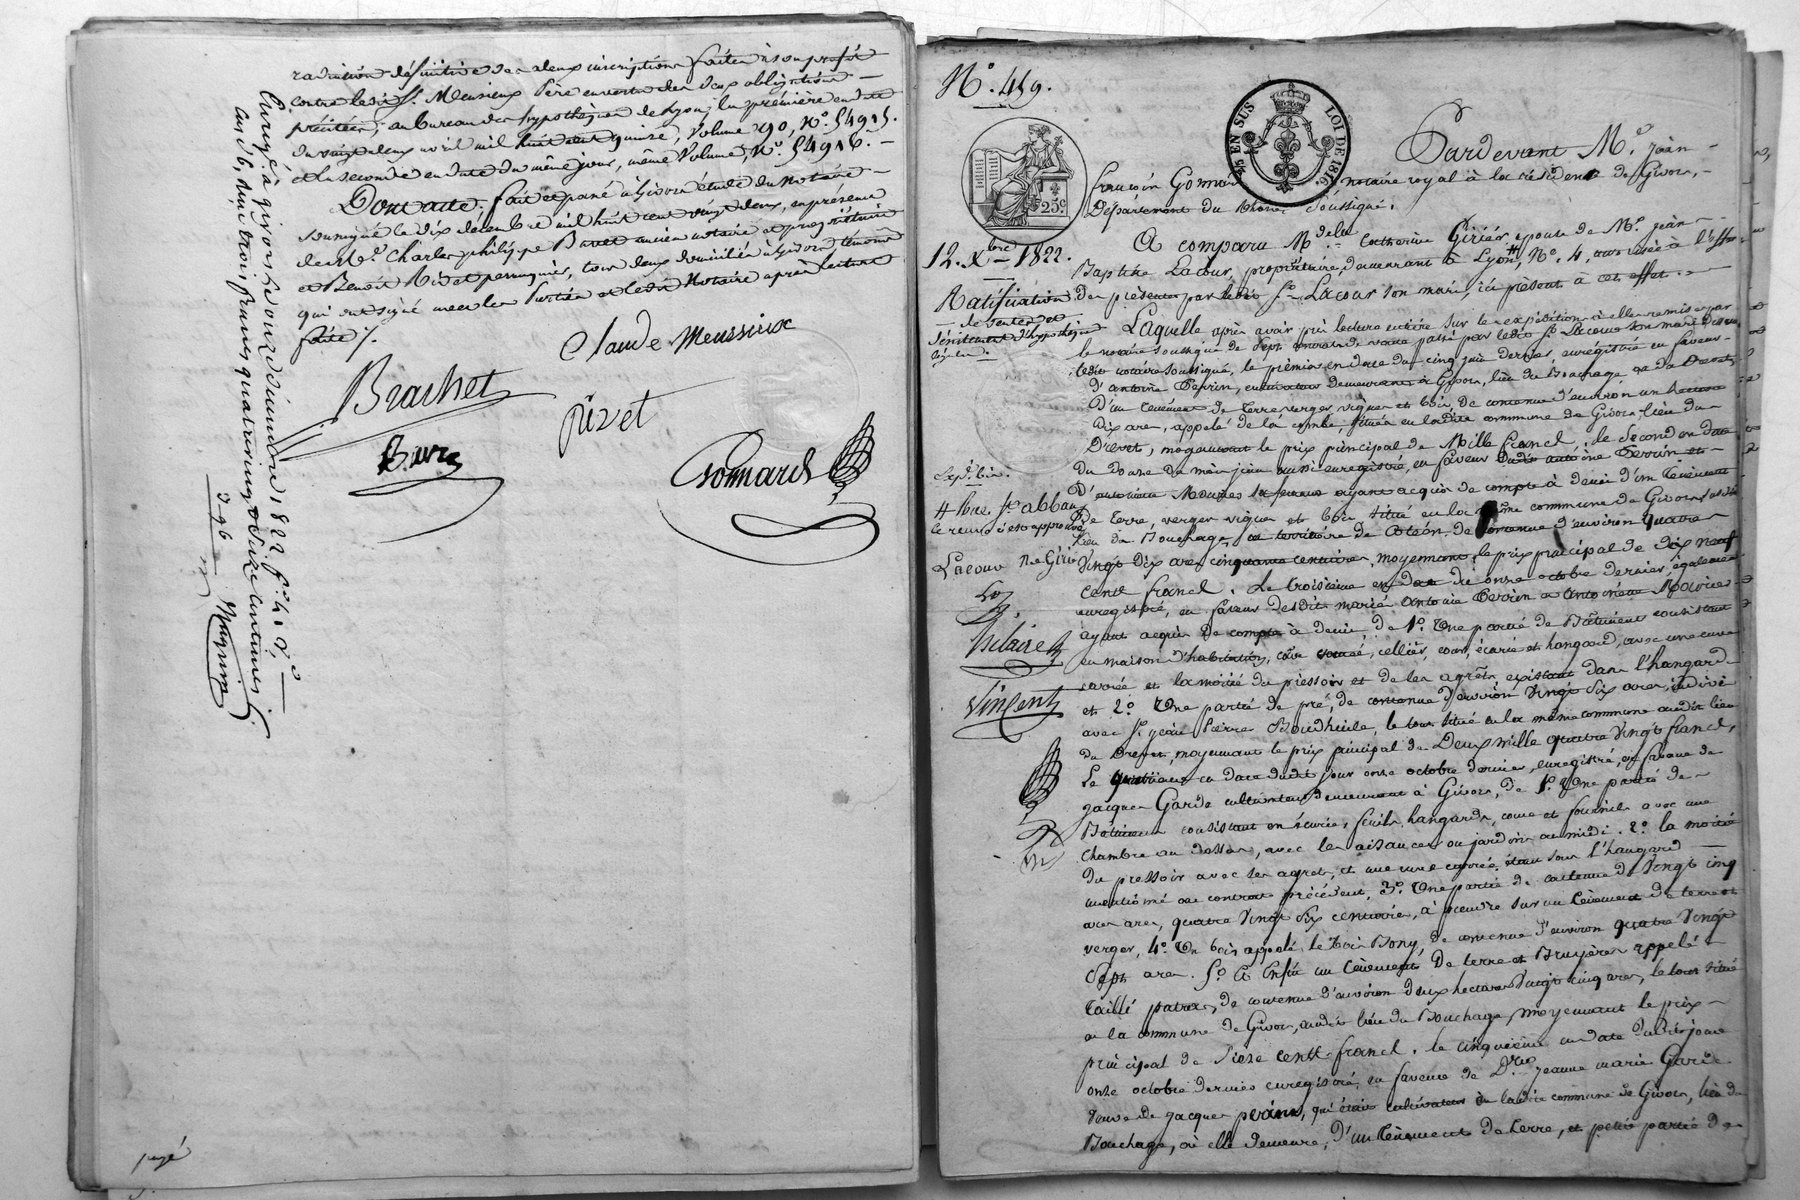 radiation définitive des deux inscriptions faites à son profit
contre ledit Sr. Meusieux père en vertu des deux obligations
précitées, au bureau des hypothèques de Lyon, la première en date
du vingt deux avril mil huit cent quinze, Volume 90, No. 54915.
et la seconde en date du même jour, même Volume, No. 54916.
Dont acte. fait et passé à Givors étude du notaire
soussigné le dix décembre mil huit cent vingt deux, en présence
de Mr. Charles philippe ancien notaire et propriétaire
et Benoit Rivet perruquier, tous deux domiciliés à Givors témoins
qui ont signé avec les Parties et ledit Notaire après lecture
faite ./.
Claude Meussieux
Brachet
Rivet
Gomard
Enregé. à givors le onze décembre 1822 fo. 41 Vo.
Cas. 6, reçu trois francs quatre vingt seize centimes
3-96
payé
No. 459.
25c.
¼ EN SUS
LOI DE 1816
12. Xbre 1822.
Ratification
de ventes et
Désistement d'hypothèque
légale
Pardevant Me. jean
françois Gomard notaire royal à la résidence de Givors,
Département du Rhône soussigné.
A comparu Mde. Catherine Girier épouse de Mr. jean
Baptiste Lacour, propriétaire, demeurant à Lyon, No. 4, autorisée à l'effet
des présentes par ledit Sr. Lacour son mari, ici présent à cet effet.
Laquelle après avoir pris lecture entière sur les expéditions à elle remises par
le notaire soussigné de Sept contrats de vente passés par ledit Sr. Lacour son mari devant
ledit notaire soussigné, le premier en date du cinq juin dernier, enregistré en faveur
d'antoine Perrin, cultivateur demeurant à Givors, lieu du Bouchage
D'un tènement de terre, verger, vignes et bois, de contenue d'environ un hectare
dix ares, appelé de la combe, situé en ladite commune de Givors lieu du
Drevet, moyennant le prix principal de Mille francs. le Second en date
du Douze du mois juin aussi enregistré, en faveur dudit antoine Perrin et
D'antoinette Mourier sa femme ayant acquis de compte à demi d'un tènement
de terre, verger vignes et bois situé en la même commune de Givors
lieu du Bouchage, territoire de de contenue d'environ quatre
Vingt Dix ares cinquante centiares, moyennant le prix principal de dix neuf
cents francs. Le troisième en date du onze octobre dernier, également
enregistré, en faveur desdits mariés antoine Perrin et antoinette Mourier
ayant acquis de compte à demi, de 1o. Une partie de Bâtiments consistant
en maison d'habitation, cellier, cour, écurie et hangard, avec une cuve
carrée et la moitié du pressoir et de ses agrêts, existant dans l'hangard
et 2o. Une partie de pré, de contenue d'environ Vingt Six ares, indivis
avec Sr. jean Pierre le tout situé en la même commune audit lieu
du Drevet, moyennant le prix principal de Deux mille quatre Vingt francs,
Le quatrième en date dudit jour onze octobre dernier, enregistré, en faveur de
jacques Garde cultivateur demeurant à Givors, de 1o. Une partie de
Bâtiments consistant en écurie, fenil, hangards, cour et fournil avec une
chambre au dessus, avec les aisances ou jardin au midi. 2o. la moitié
du pressoir avec ses agrêts, et une cuve carrée étant sous l'hangard
mentionné au contrat précédent, 3o. Une partie de contenue de Vingt cinq
ares, quatre Vingt Six centiares, à prendre sur un tènement de terre et
verger, 4o. Un bois appelé le bois Bony, de contenue d'environ quatre Vingt
Sept ares. 5o. Et Enfin un tènement De terre et Bruyères appelé
de contenue d'environ deux hectares Vingt cinq ares, le tout situé
en la commune de Givors, audit lieu du Bouchage, moyennant le prix
principal de Seize cents francs. le cinquième en date dudit jour
onze octobre dernier enregistré, en faveur de Dme. jeanne marie Garde
Veuve de jacques perrin, qui était cultivateur en ladite commune de Givors, lieu du
Bouchage, où elle demeure, D'un tènement de terre, et petite partie de
le renvoi ci est approuvé
Lacour Ne. Girié
Hilaire
Vincent